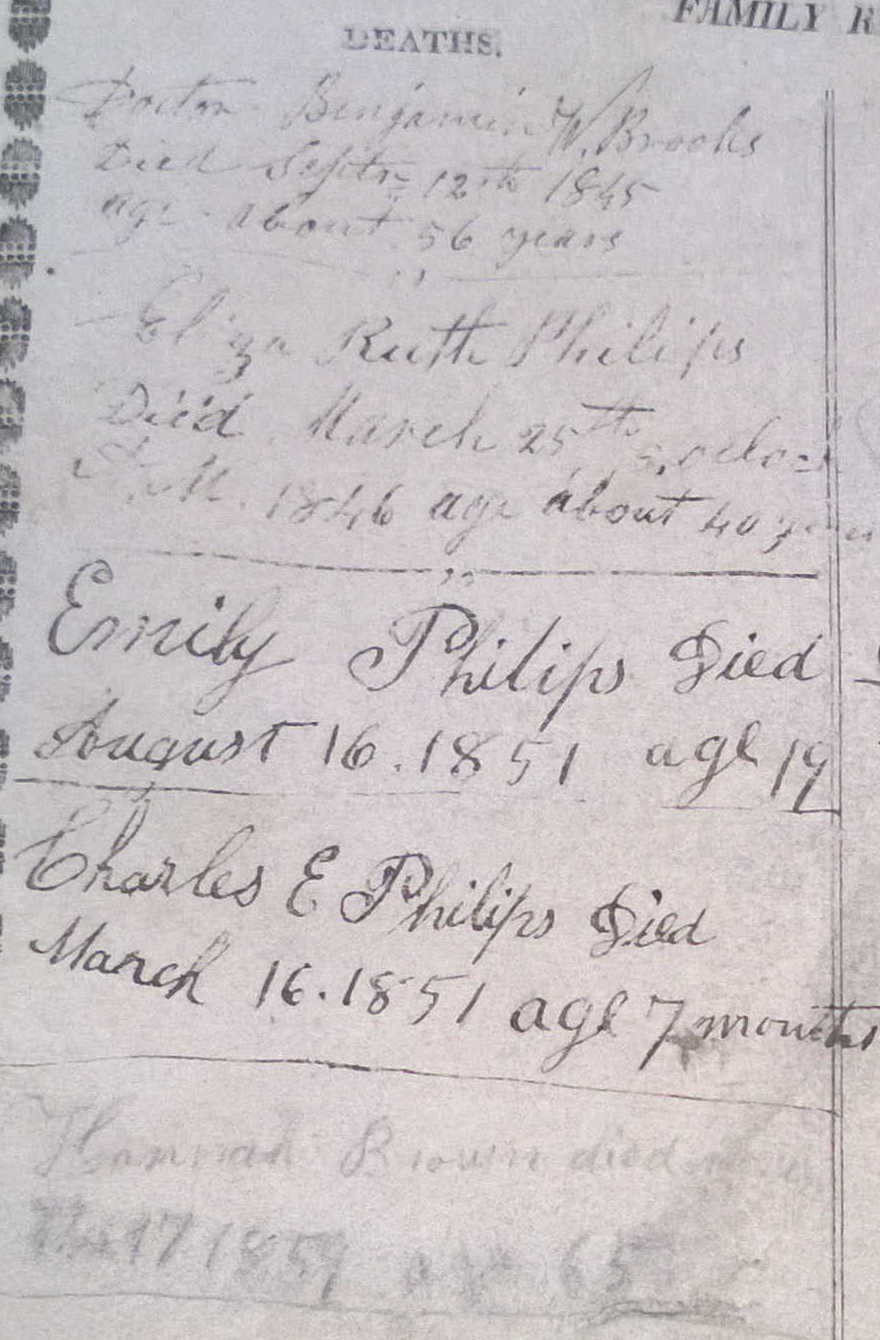 FAMILY R
DEATHS.
Doctor Benjamin W. Brooks
Died Septr 12th 1845
age about 56 years
Eliza Ruth Philips
Died March 25th oclock
M. 1846 age about 40
Emily Philips Died
August 16. 1851 age 19
Charles E Philips Died
March 16. 1851 age 7 months
Hannah Brown died
17 1859 age 65